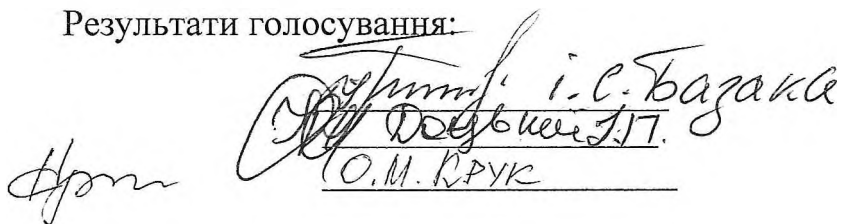 Результати голосування:
і.С. Базака
Доцький І.П.
О.М. Крук